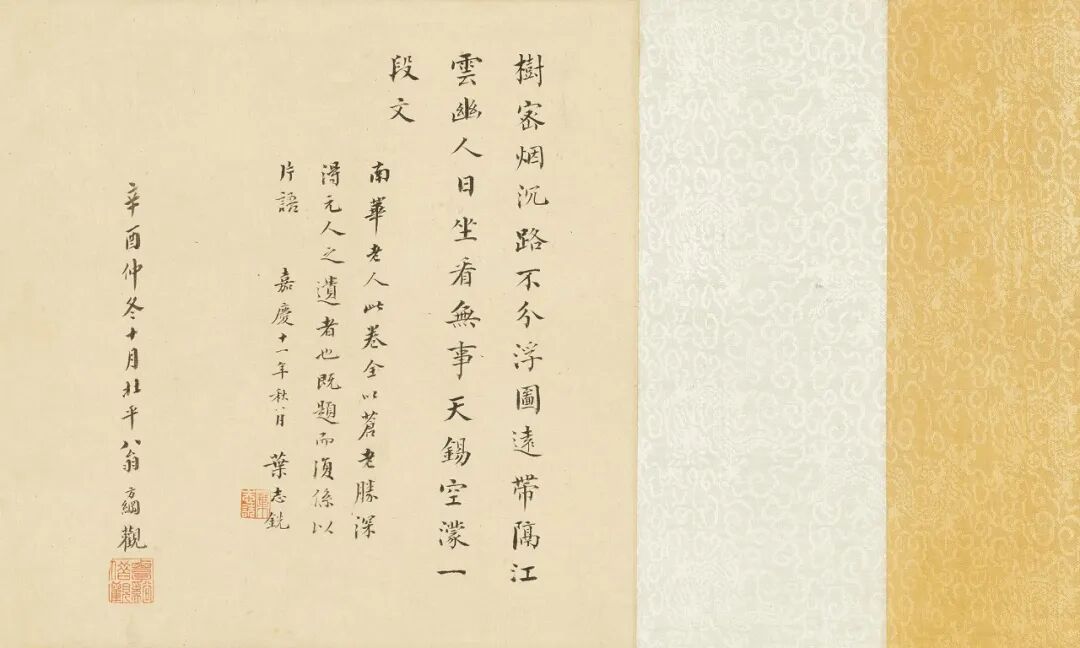 樹密烟沉路不分浮圖遠帶隔江
雲幽人日坐看無事天錫空濛一
段文
南華老人此卷全以蒼老勝深
得元人之遺者也既題而湏係以
片語 嘉慶十一年秋八月 葉志詵
辛酉仲冬十月平八翁方綱觀
覃谿借觀